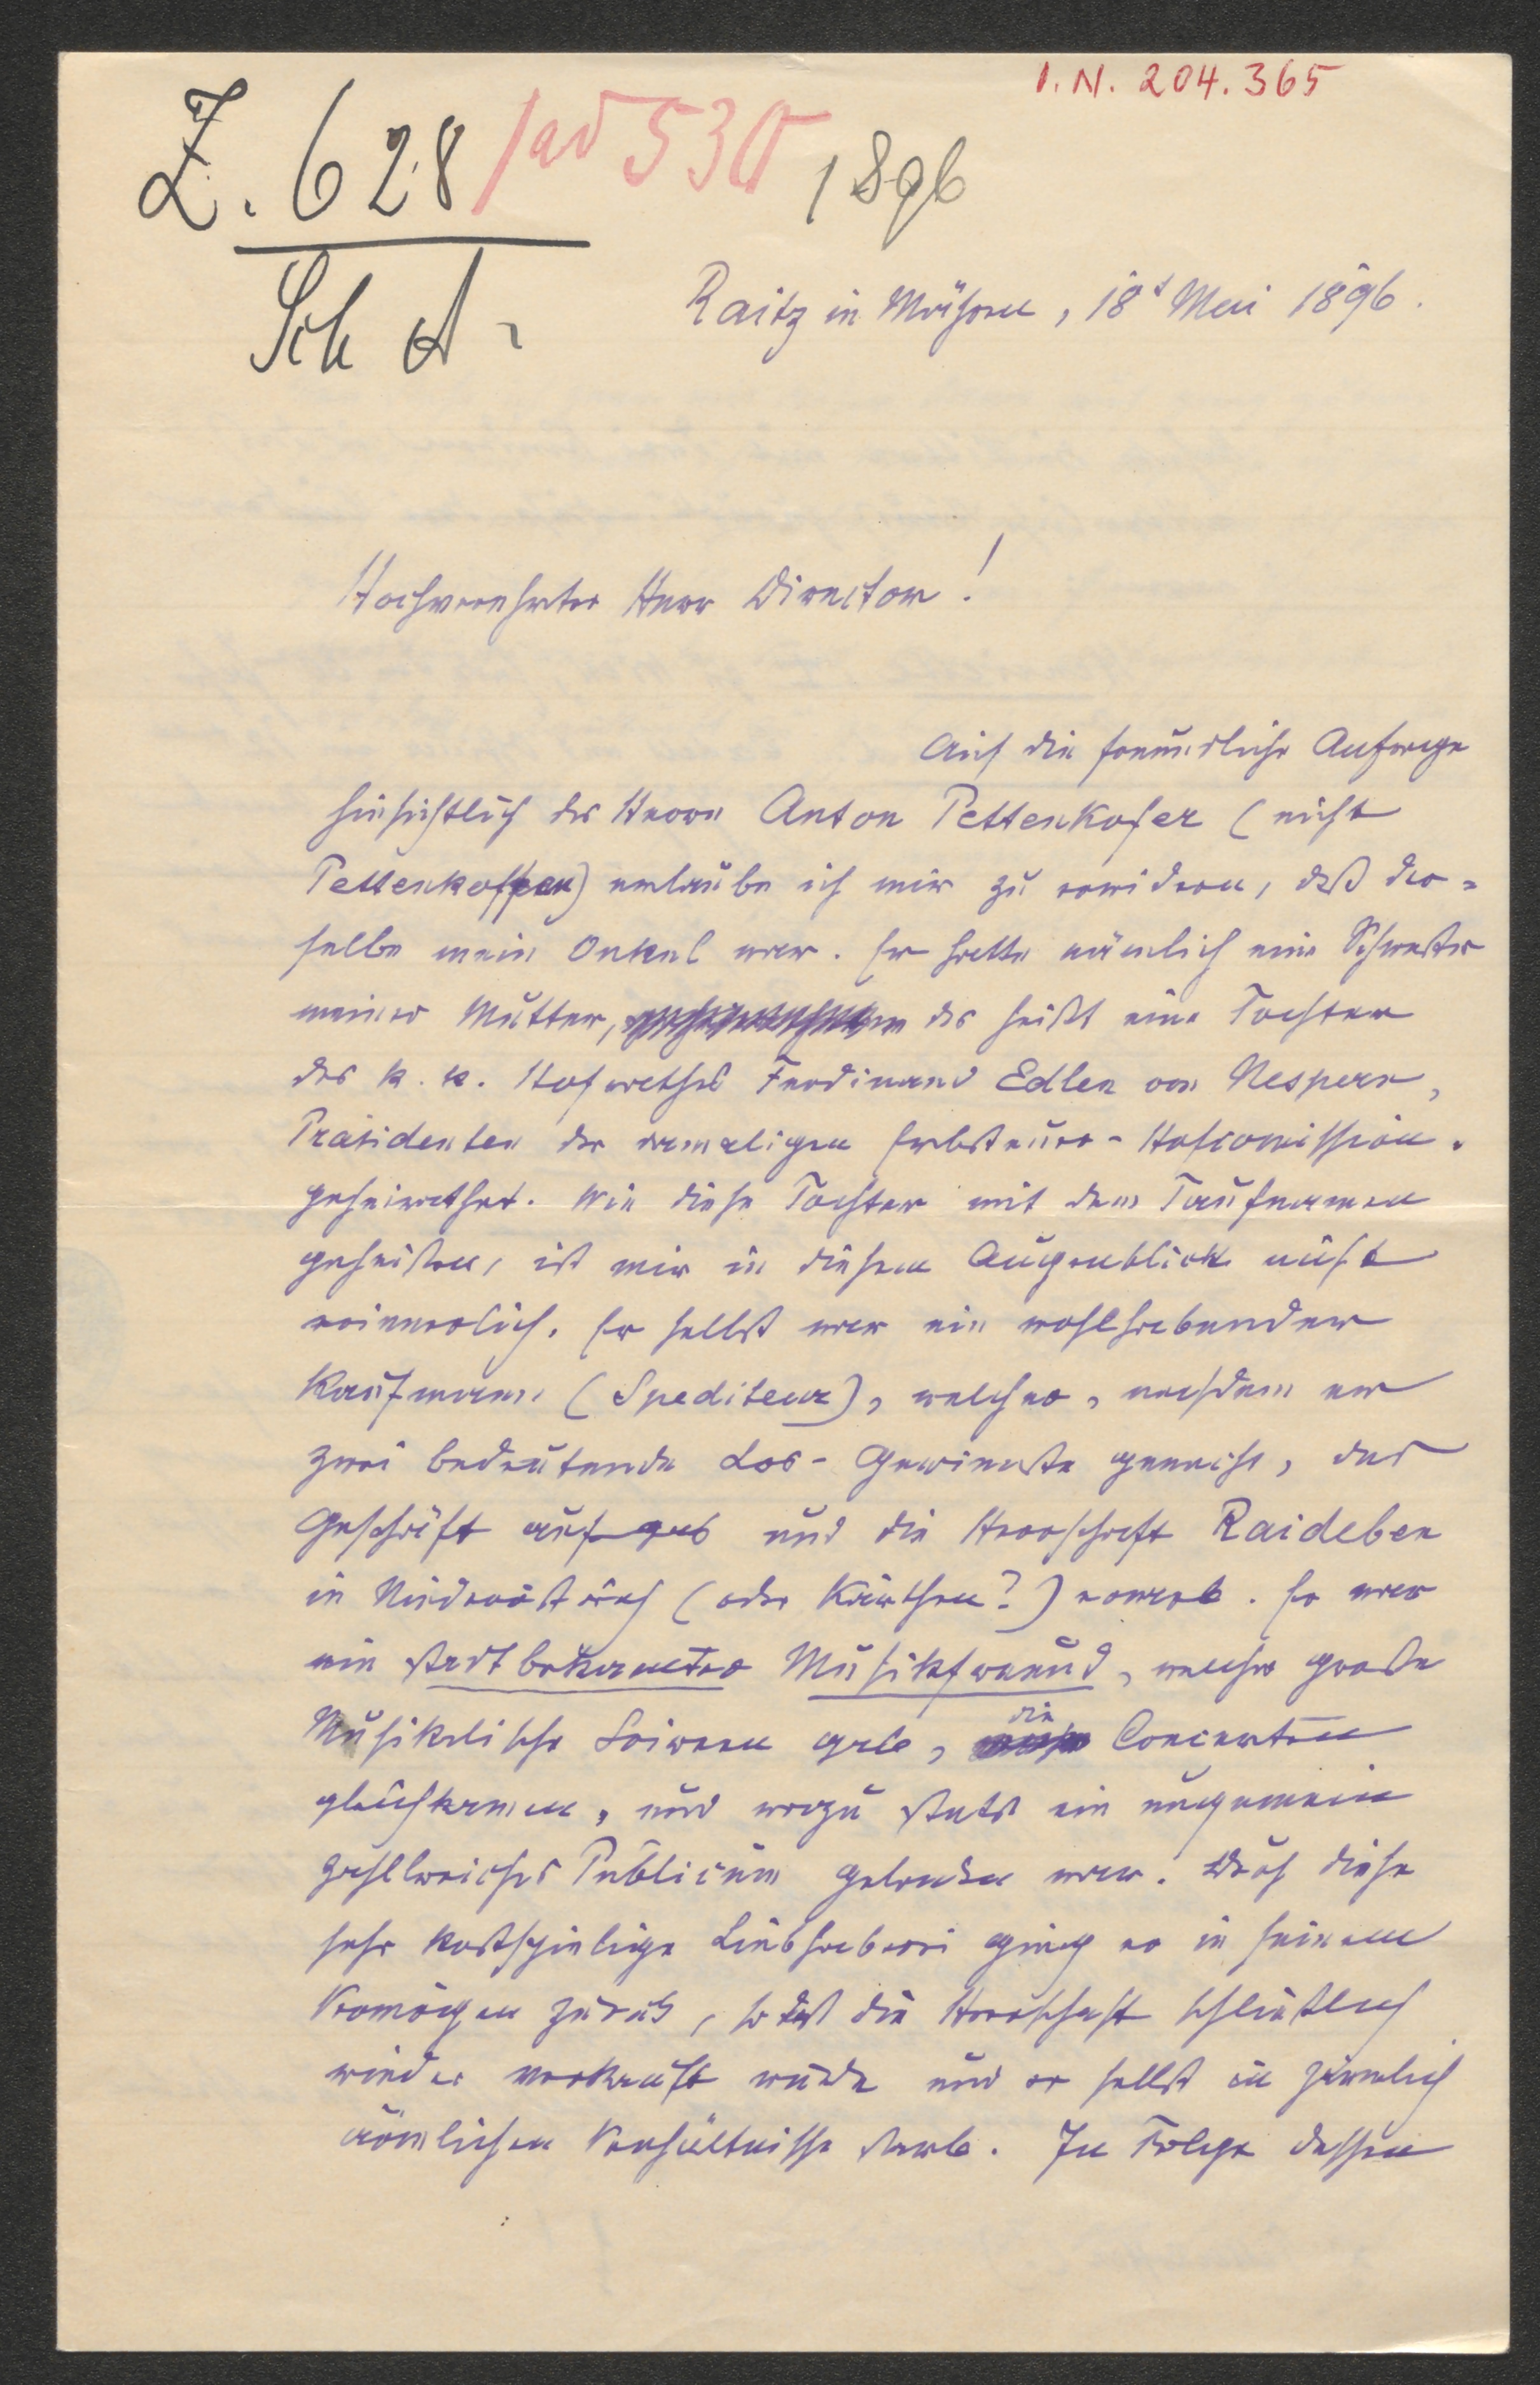 I. N. 204.365
Z. 628 / ad 530 1896
Sch A.
Raitz in Mähren, 18t Mai 1896.
Hochverehrter Herr Director!
Auf die freundliche Anfrage
hinsichtlich des Herrn Anton Pettenkofer (nicht
Pettenkoffer) erlaube ich mir zu erwidern, daß der-
selbe mein Onkel war. Er hatte nämlich eine Schwester
meiner Mutter, das heißt eine Tochter
des k. k. Hofrathes Ferdinand Edlen von Nespern,
Präsidenten der damaligen Erbsteuer-Hofcomission.
geheirathet. Wie diese Tochter mit dem Taufnamen
geheißen, ist mir in diesem Augenblick nicht
erinnerlich. Er selbst war ein wohlhabender
Kaufmann (Spediteur), welcher, nachdem er
zwei bedeutende Los-Gewinnste gemacht, das
Geschäft aufgab und die Herrschaft Raideben
in Niederöstreich (oder Kärnthen?) erwarb. Er war
ein stadtbekannter Musikfreund, welcher große
Musikalische Soireen gab, die Concerten
gleichkamen, und wozu stets ein ungemein
zahlreiches Publicum geladen war. Durch diese
sehr kostspielige Liebhaberei ging er in seinem
Vermögen zurück, so daß die Herrschaft schließlich
wieder verkauft wurde und er selbst in ziemlich
ärmlichen Verhältnisse starb. In Folge dessen